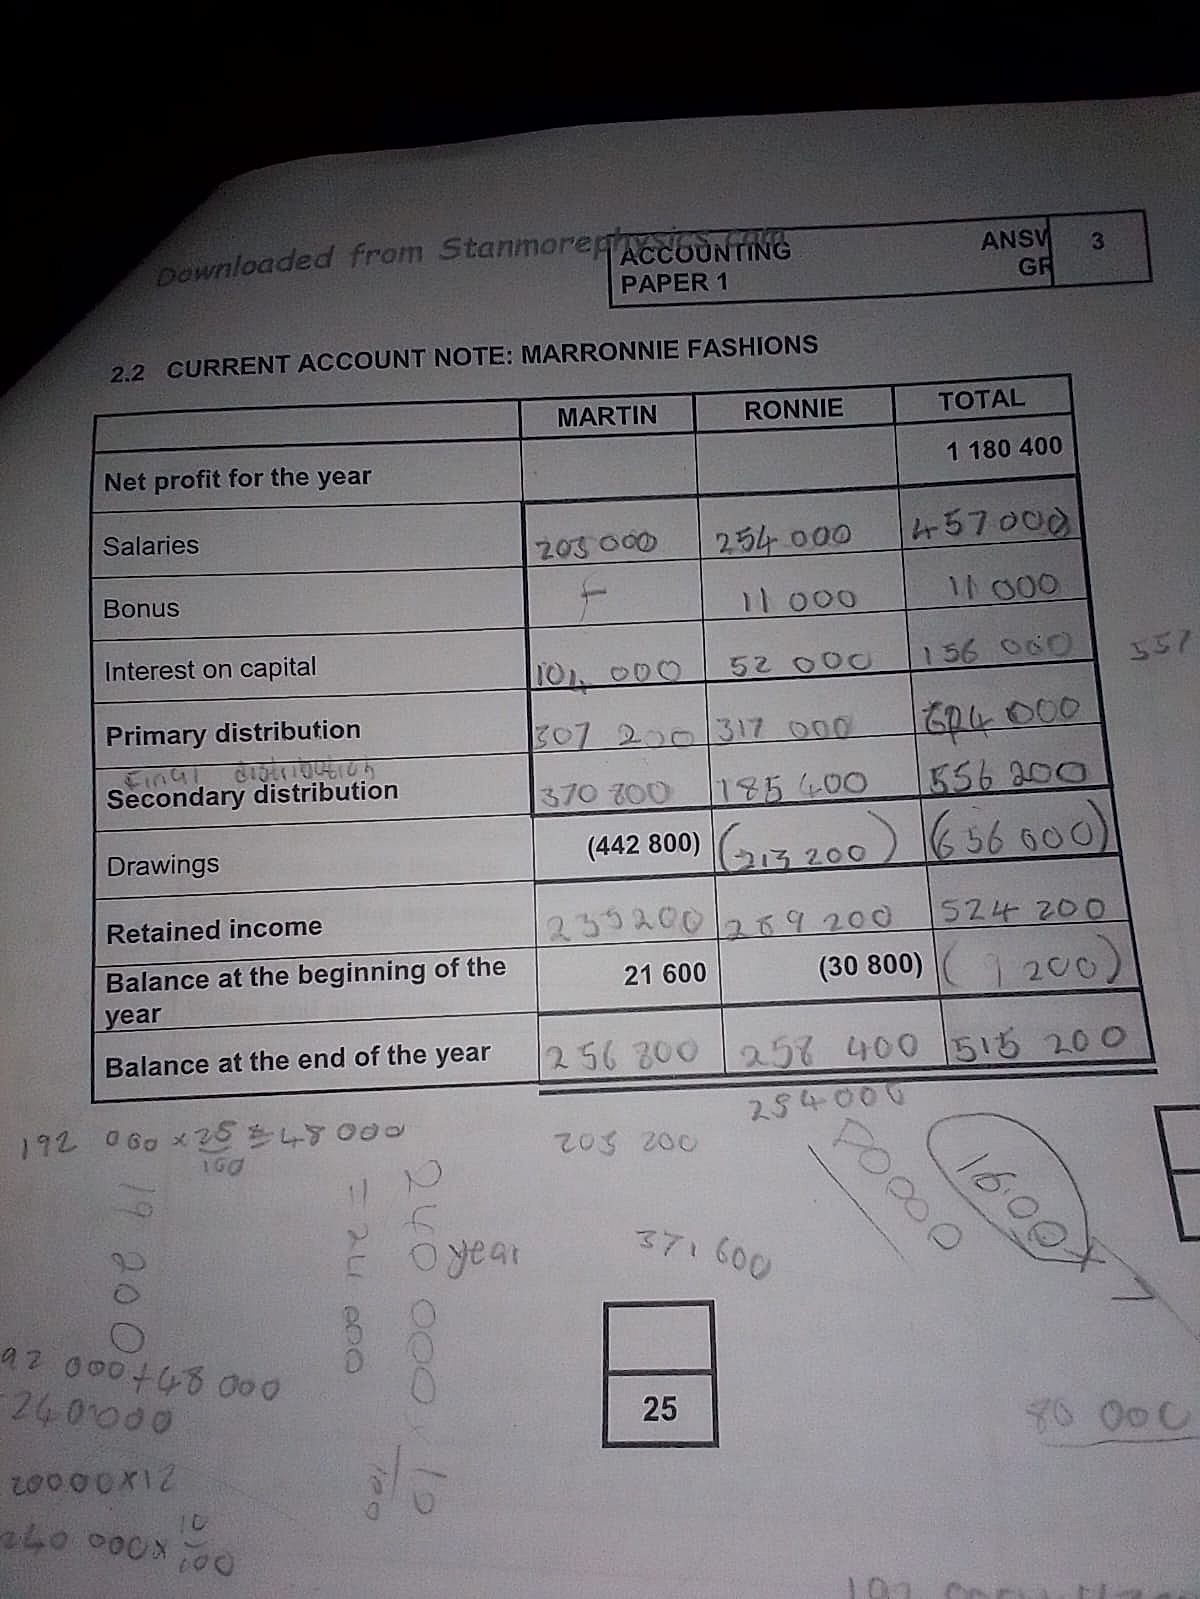 Downloaded from Stanmorephysics.com
ACCOUNTING ANSW 3
PAPER 1 GR
2.2 CURRENT ACCOUNT NOTE: MARRONNIE FASHIONS
MARTIN RONNIE TOTAL
Net profit for the year 1 180 400
Salaries 203 000 254 000 457 000
Bonus 11 000 11 000
Interest on capital 52 000 156 000 557
Primary distribution 307 200 317 000 624 000
Final distribution
Secondary distribution 370 800 185 400 556 200
Drawings (442 800) (213 200) (656 000)
Retained income 235200 269 200 524 200
Balance at the beginning of the 21 600 (30 800) (9 200)
year
Balance at the end of the year 256 800 258 400 515 200
254000
192 000 x 25 = 48 000
100
203 200
19 200
= 24 000
240 000 x 10
100
year
371 600
80000
92 000 + 48 000
240000
25
80 000
100